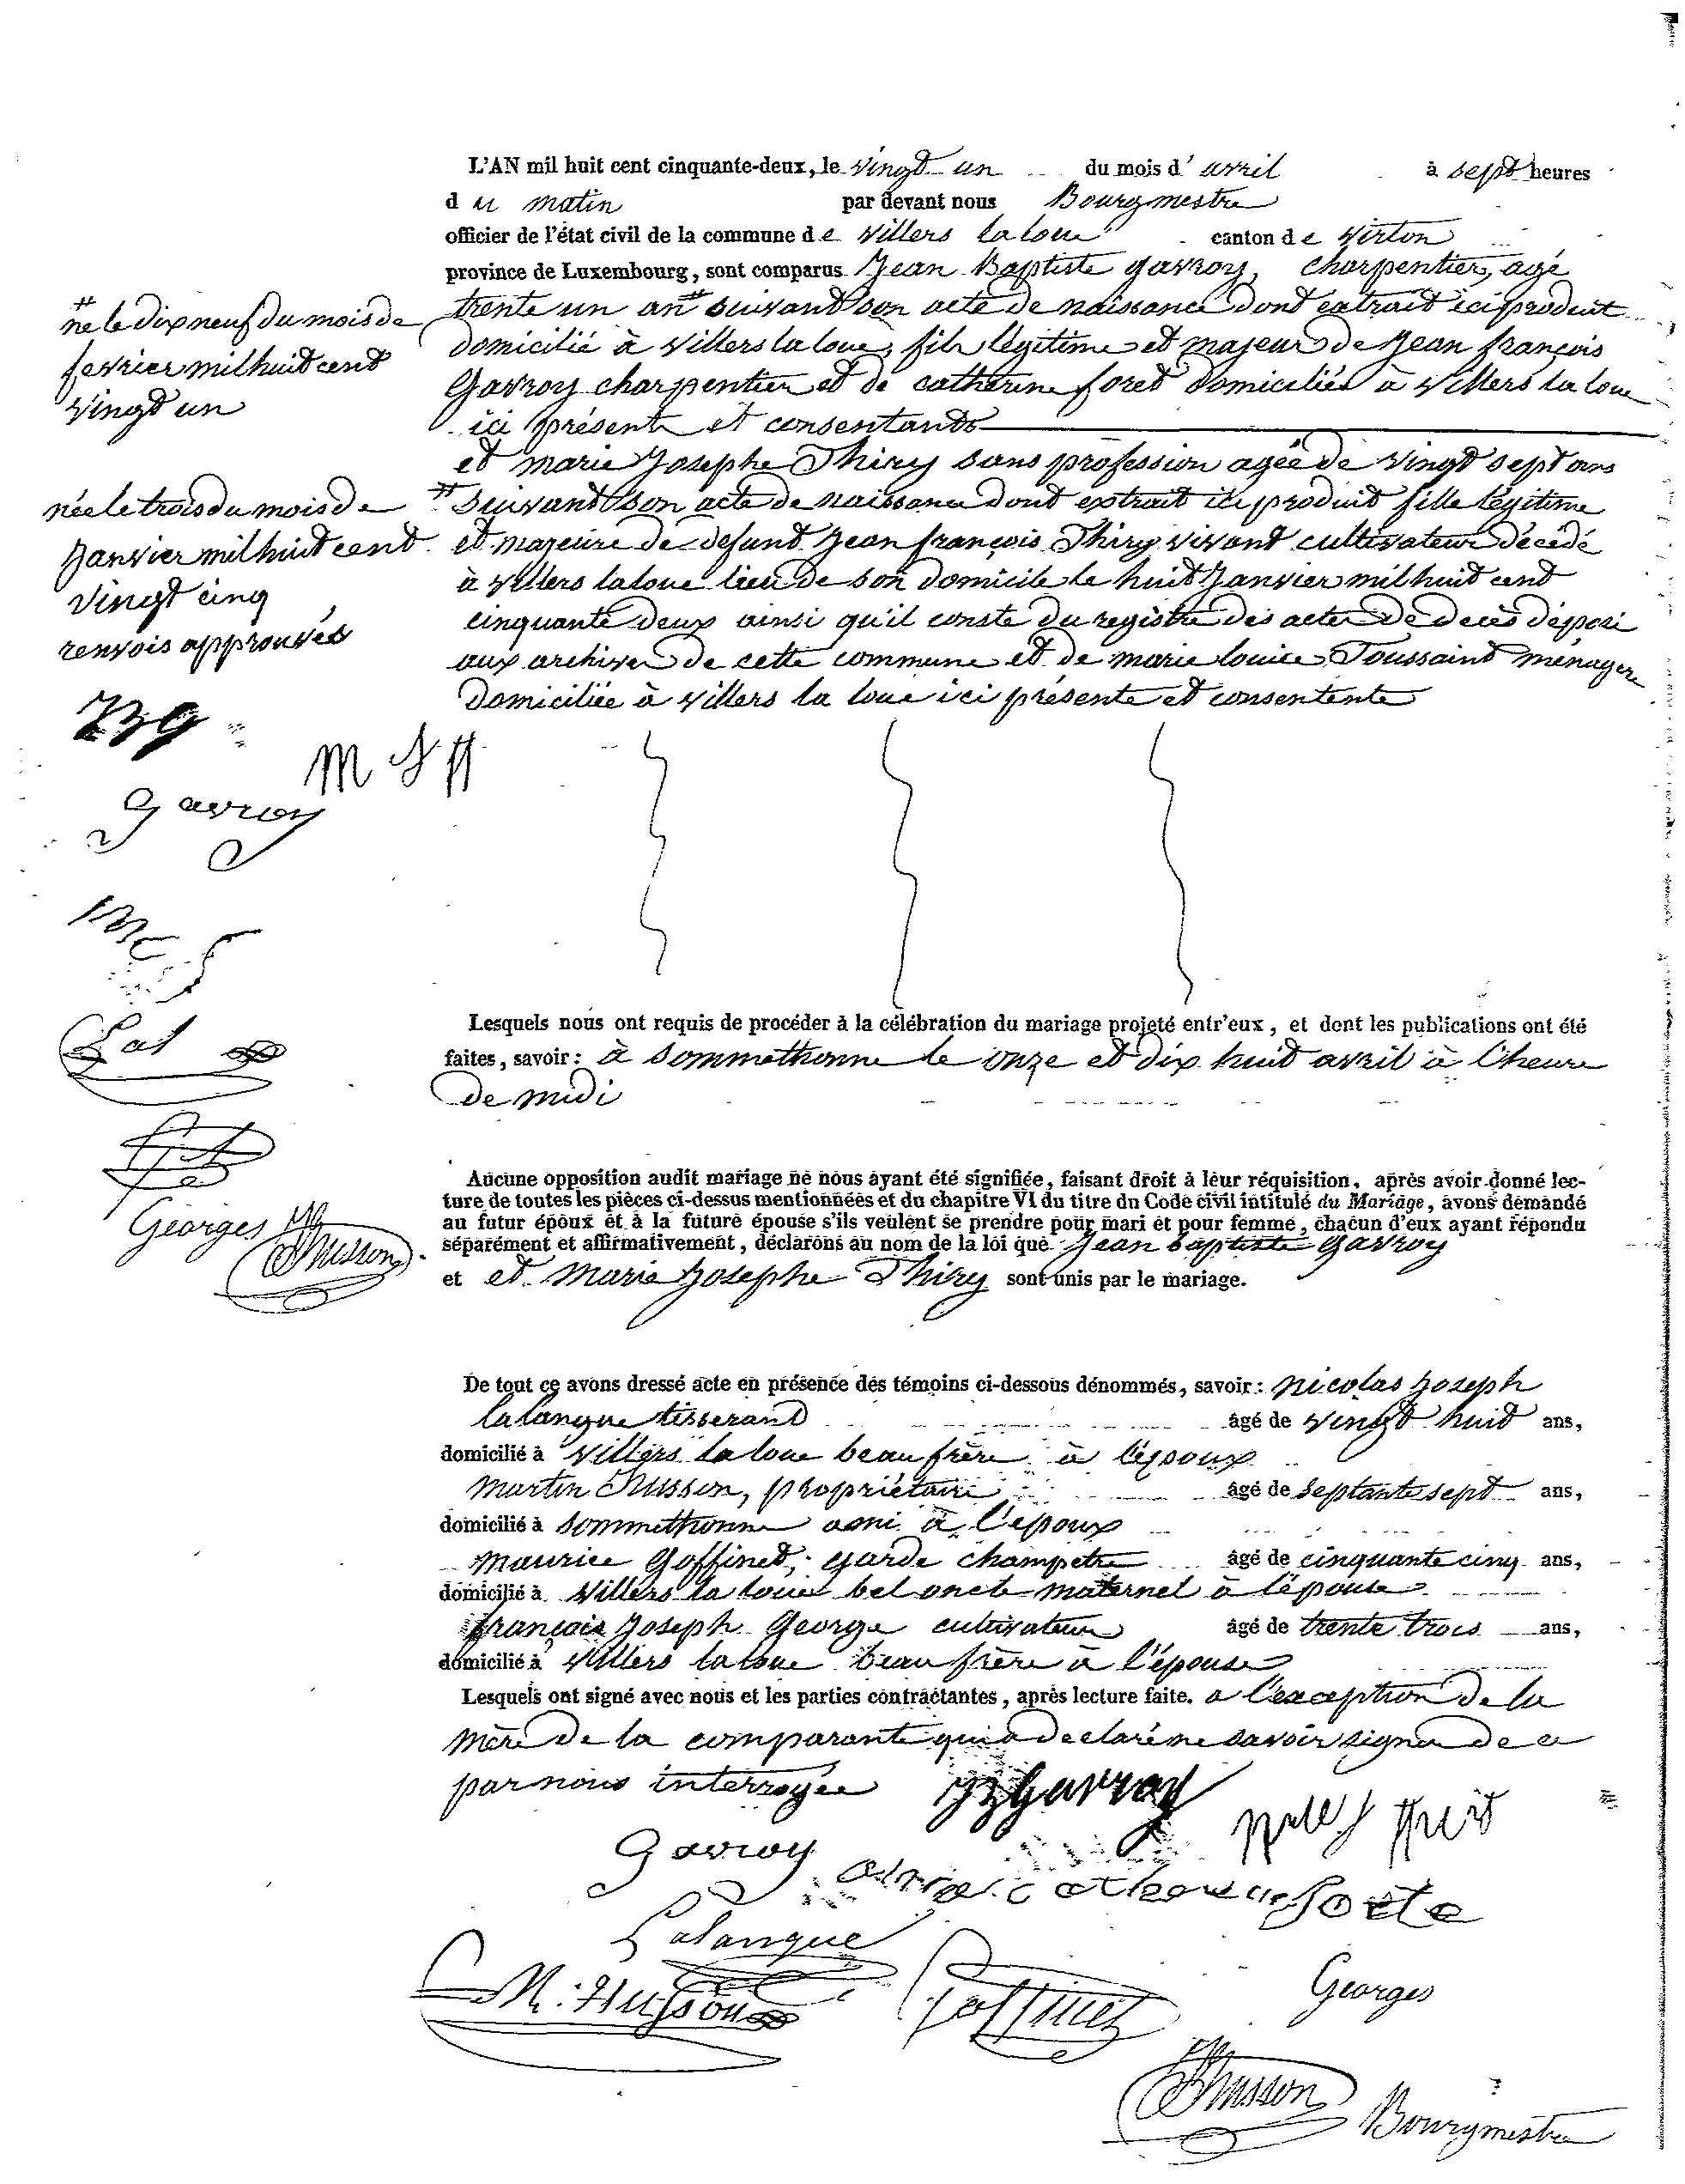 L'AN mil huit cent cinquante-deux, le vingt un du mois d'avril à sept heures
du matin par devant nous Bourgmestre
officier de l'état civil de la commune de villers la loue canton de virton
province de Luxembourg, sont comparus Jean Baptiste gavroy, charpentier, agé
trente un an # suivant son acte de naissance dont extrait ici produit
domicilié à villers la loue, fils légitime et majeur de Jean françois
Gavroy charpentier et de catherine foret domiciliés à villers la loue
ici présents et consentants
et marie Josephe Thiry sans profession agée de vingt sept ans
# suivant son acte de naissance dont extrait ici produit fille légitime
et majeure de defunt Jean françois Thiry vivant cultivateur décédé
à villers la loue lieu de son domicile le huit Janvier mil huit cent
cinquante deux ainsi qu'il conste du registre des actes de decès déposé
aux archives de cette commune et de marie louise Toussaint ménagere
domiciliée à villers la loue ici présente et consentente
# né le dix neuf du mois de
fevrier mil huit cent
vingt un
née le trois du mois de
Janvier mil huit cent
vingt cinq
renvois approuvés
JBG
M J tt
gavroy
Lal
Georges
Husson
Lesquels nous ont requis de procéder à la célébration du mariage projeté entr'eux, et dont les publications ont été
faites, savoir: à sommethonne le onze et dix huit avril à l'heure
de midi
Aucune opposition audit mariage ne nous ayant été signifiée, faisant droit à leur réquisition, après avoir donné lec-
ture de toutes les pièces ci-dessus mentionnées et du chapitre VI du titre du Code civil intitulé du Mariage, avons demandé
au futur époux et à la future épouse s'ils veulent se prendre pour mari et pour femme, chacun d'eux ayant répondu
séparément et affirmativement, déclarons au nom de la loi que Jean baptiste gavroy
et et Marie Josephe Thiry sont unis par le mariage.
De tout ce avons dressé acte en présence des témoins ci-dessous dénommés, savoir: nicolas Joseph
lalangue tisserand âgé de vingt huit ans,
domicilié à villers la loue beau frère à l'époux
martin Husson, propriétaire âgé de septante sept ans,
domicilié à sommethonne ami à l'epoux
maurice Goffinet, garde champetre âgé de cinquante cinq ans,
domicilié à villers la loue bel oncle maternel à l'épouse
françois Joseph George cultivateur âgé de trente trois ans,
domicilié à villers la loue beau frère à l'épouse
Lesquels ont signé avec nous et les parties contractantes, après lecture faite. a l'exception de la
mère de la comparante qui a declaré ne savoir signer de ce
par nous interrogée
JB Gavroy
Gavroy
catherine forete
Lalangue
M. Husson
Goffinet
Georges
Husson Bourgmestre